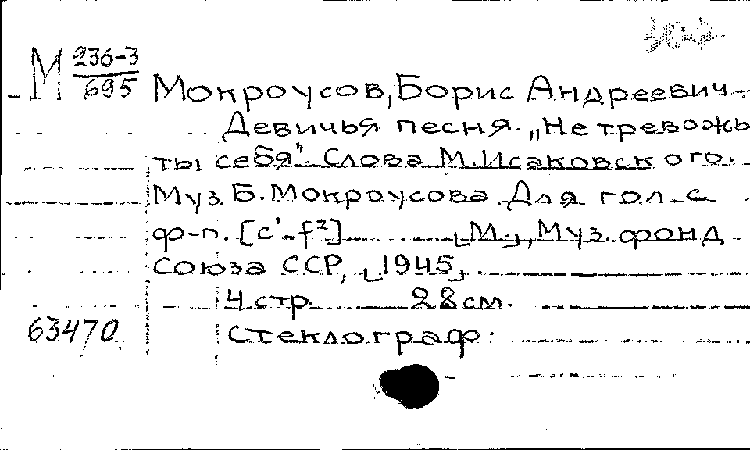 М 236-3
695
Мокроусов, Борис Андреевич
Девичья песня. „Не тревожь
ты себя". Слова М. Исаковского.
Муз. Б. Мокроусова. Для гол. с
ф-п. [c'-f²] [М.], Муз. фонд
Союза ССР, [1945]
4 стр. 28 см.
63470 Стеклограф.